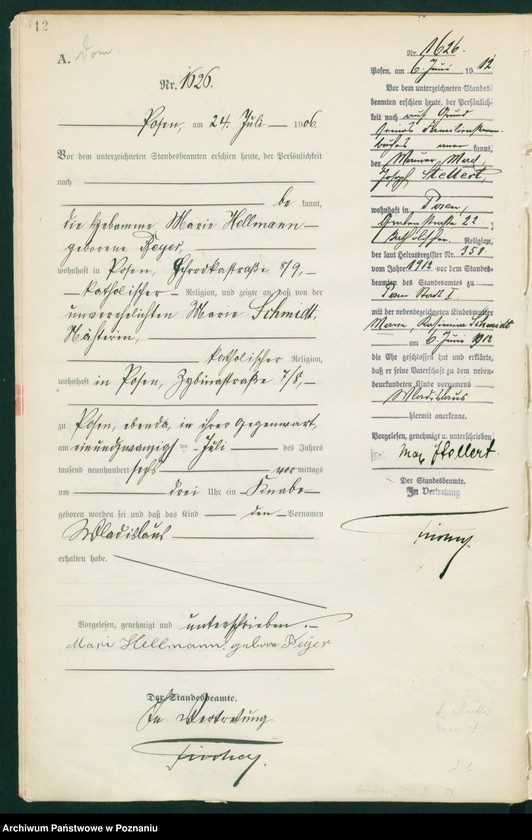 12
A. Dom.
Nr. 1626.
Posen, am 24. Juli 1906.
Vor dem unterzeichneten Standesbeamten erschien heute, der Persönlichkeit
nach
be kannt,
die Hebamme Marie Hellmann
geborene Beyer,
wohnhaft in Posen, Schrodkastraße 8/9,
katholischer Religion, und zeigte an, daß von der
unverehelichten Marie Schmidt,
Näherin,
katholischer Religion,
wohnhaft in Posen, Zybinastraße 7/8,
zu Posen, ebenda, in ihrer Gegenwart
am einundzwanzigsten Juli des Jahres
tausend neunhundert sechs vor mittags
um drei Uhr ein Knabe
geboren worden sei und daß das Kind den Vornamen
Wladislaus
erhalten habe.
Vorgelesen, genehmigt und unterschrieben.
Marie Hellmann, geborene Beyer
Der Standesbeamte.
In Vertretung
Nr. 1626.
Posen, am 6. Juni 1912
Vor dem unterzeichneten Standes-
beamten erschien heute, der Persönlich-
keit nach auf Grund
seines Familienstamm-
buches aner kannt,
der Maurer Max
Joseph Stellert,
wohnhaft in Posen,
Grabenstraße 22,
katholischer Religion,
der laut Heiratsregister Nr. 358
vom Jahre 1912 vor dem Standes-
beamten des Standesamts zu
Posen Stadt I
mit der nebenbezeichneten Kindesmutter
Marie, Kasimira Schmidt
am 6. Juni 1912
die Ehe geschlossen hat und erklärte,
daß er seine Vaterschaft zu dem neben-
beurkundeten Kinde vornamens
Wladislaus
hiermit anerkenne.
Vorgelesen, genehmigt u. unterschrieben
Max Stellert
Der Standesbeamte.
In Vertretung
Archiwum Państwowe w Poznaniu